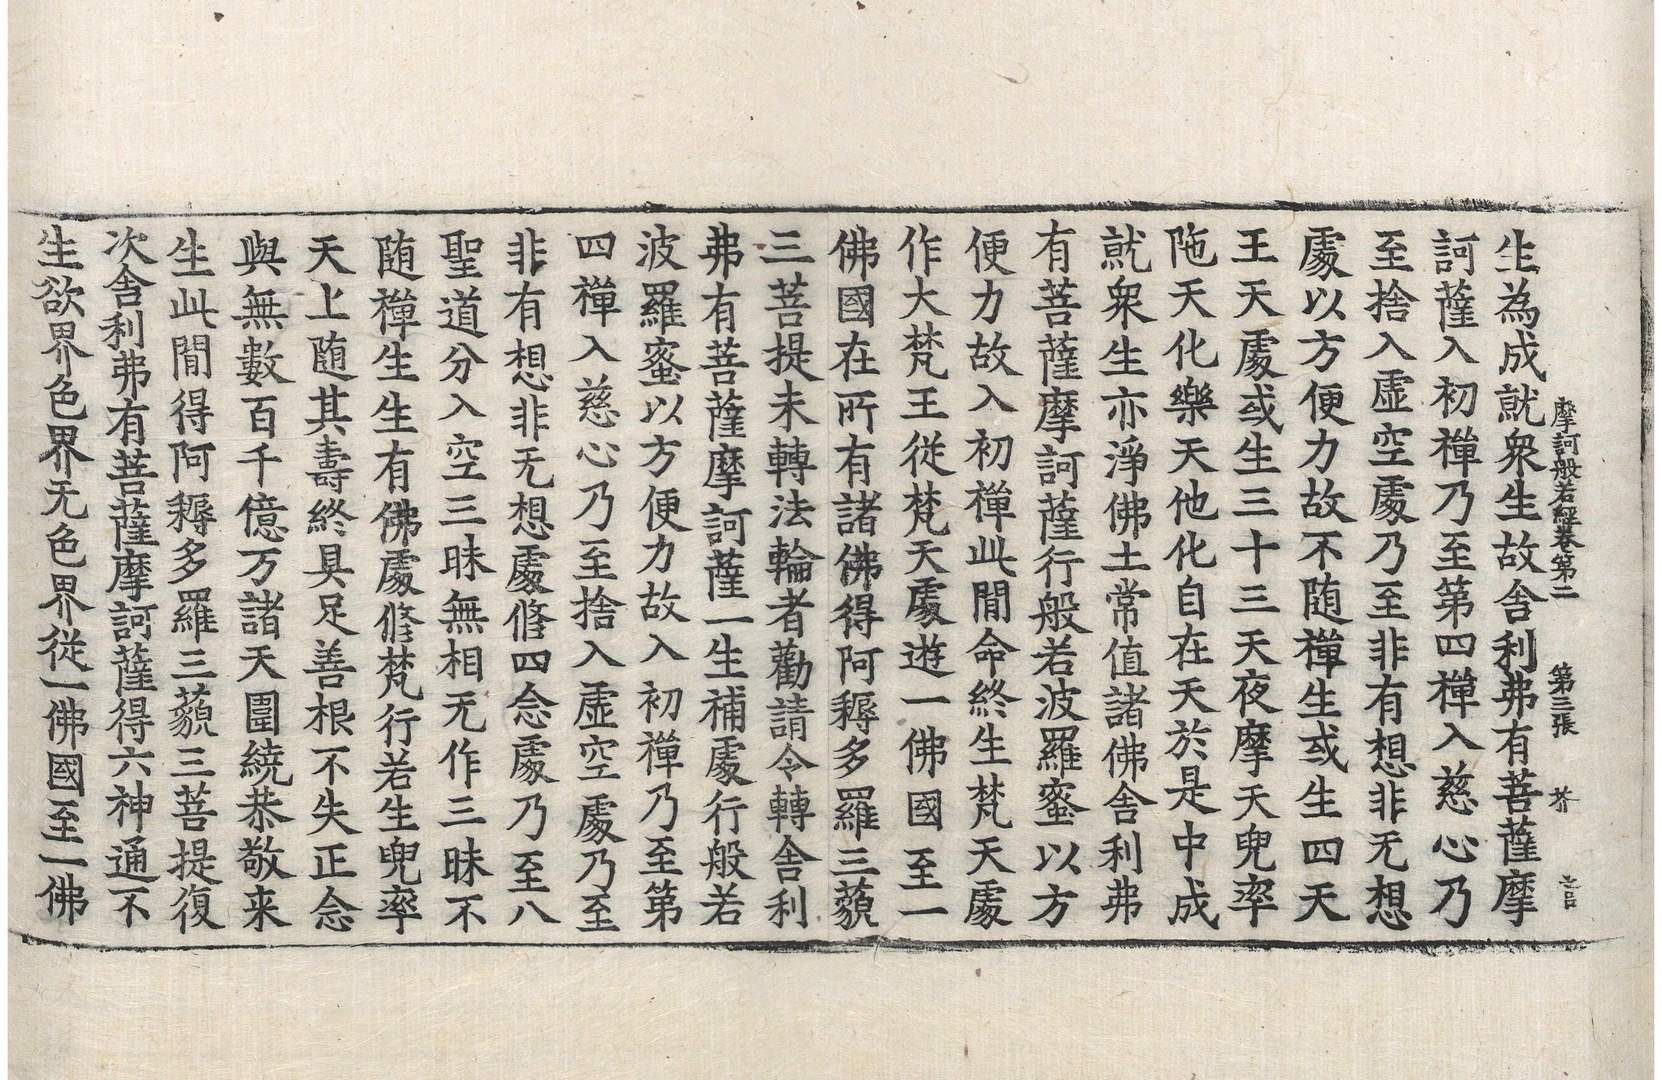 摩訶般若經卷第二 第三張 芥
生為成就衆生故舍利弗有菩薩摩
訶薩入初禪乃至第四禪入慈心乃
至捨入虛空處乃至非有想非无想
處以方便力故不随禪生或生四天
王天處或生三十三天夜摩天兜率
陁天化樂天他化自在天於是中成
就衆生亦淨佛土常值諸佛舍利弗
有菩薩摩訶薩行般若波羅蜜以方
便力故入初禪此閒命終生梵天處
作大梵王從梵天處遊一佛國至一
佛國在所有諸佛得阿耨多羅三藐
三菩提未轉法輪者勸請令轉舍利
弗有菩薩摩訶薩一生補處行般若
波羅蜜以方便力故入初禪乃至第
四禪入慈心乃至捨入虛空處乃至
非有想非无想處修四念處乃至八
聖道分入空三昧無相无作三昧不
随禪生生有佛處修梵行若生兜率
天上随其壽終具足善根不失正念
與無數百千億万諸天圍繞恭敬来
生此閒得阿耨多羅三藐三菩提復
次舍利弗有菩薩摩訶薩得六神通不
生欲界色界无色界從一佛國至一佛